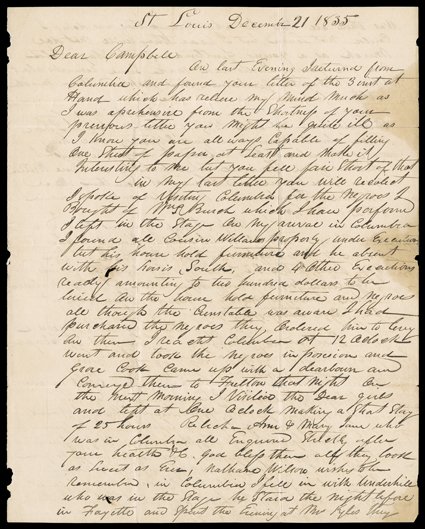 St Louis December 21 1835
Dear Campbell
On last Evening I returned from
Columbia and found your letter of the 3 inst at
Hand which has releive my mind Much as
I was aprehensive from the Shortness of your
previous letter you Might be quite ill as
I know you are all ways Capable of filling
One Sheet of paper at least and make it
Interesting to me but you fell fair Short of that
in My last letter you will recolect
I spoke of Visiting Columbia for the Negroes I
Bought of Wm S Burch which I have perform
I left in the Stage On My arrival in Columbia
I found all Cousin Williams property under Execution
his house hold furniture and he absent
with his Horses South, and 4 Other Executions
ready amounting to two hundred dollars to be
levied On the house hold furniture and Negroes
all though the Constable was aware I had
purchased the Negroes they Ordered him to levy
On them I reacht Columbia at 12 Oclock
went and took the Negroes in possesion and
Cook Came up with a dearbourn and
Conveyed them to Fulton that Night On
the Next Morning I Visited the Dear girls
and left at One Oclock Making a Short Stay
of 25 hours Ann & Mary Jane who
was in Columbia all Enquired Strictly after
your health &c. God bless them all they look
as Sweet as Ever, Nathane Wilson wishes to be
remember, in Columbia I fell in with Underhill
who was in the Stage he Staid the Night before
in Fayette and Spent the Evening at Mrs Pyles they